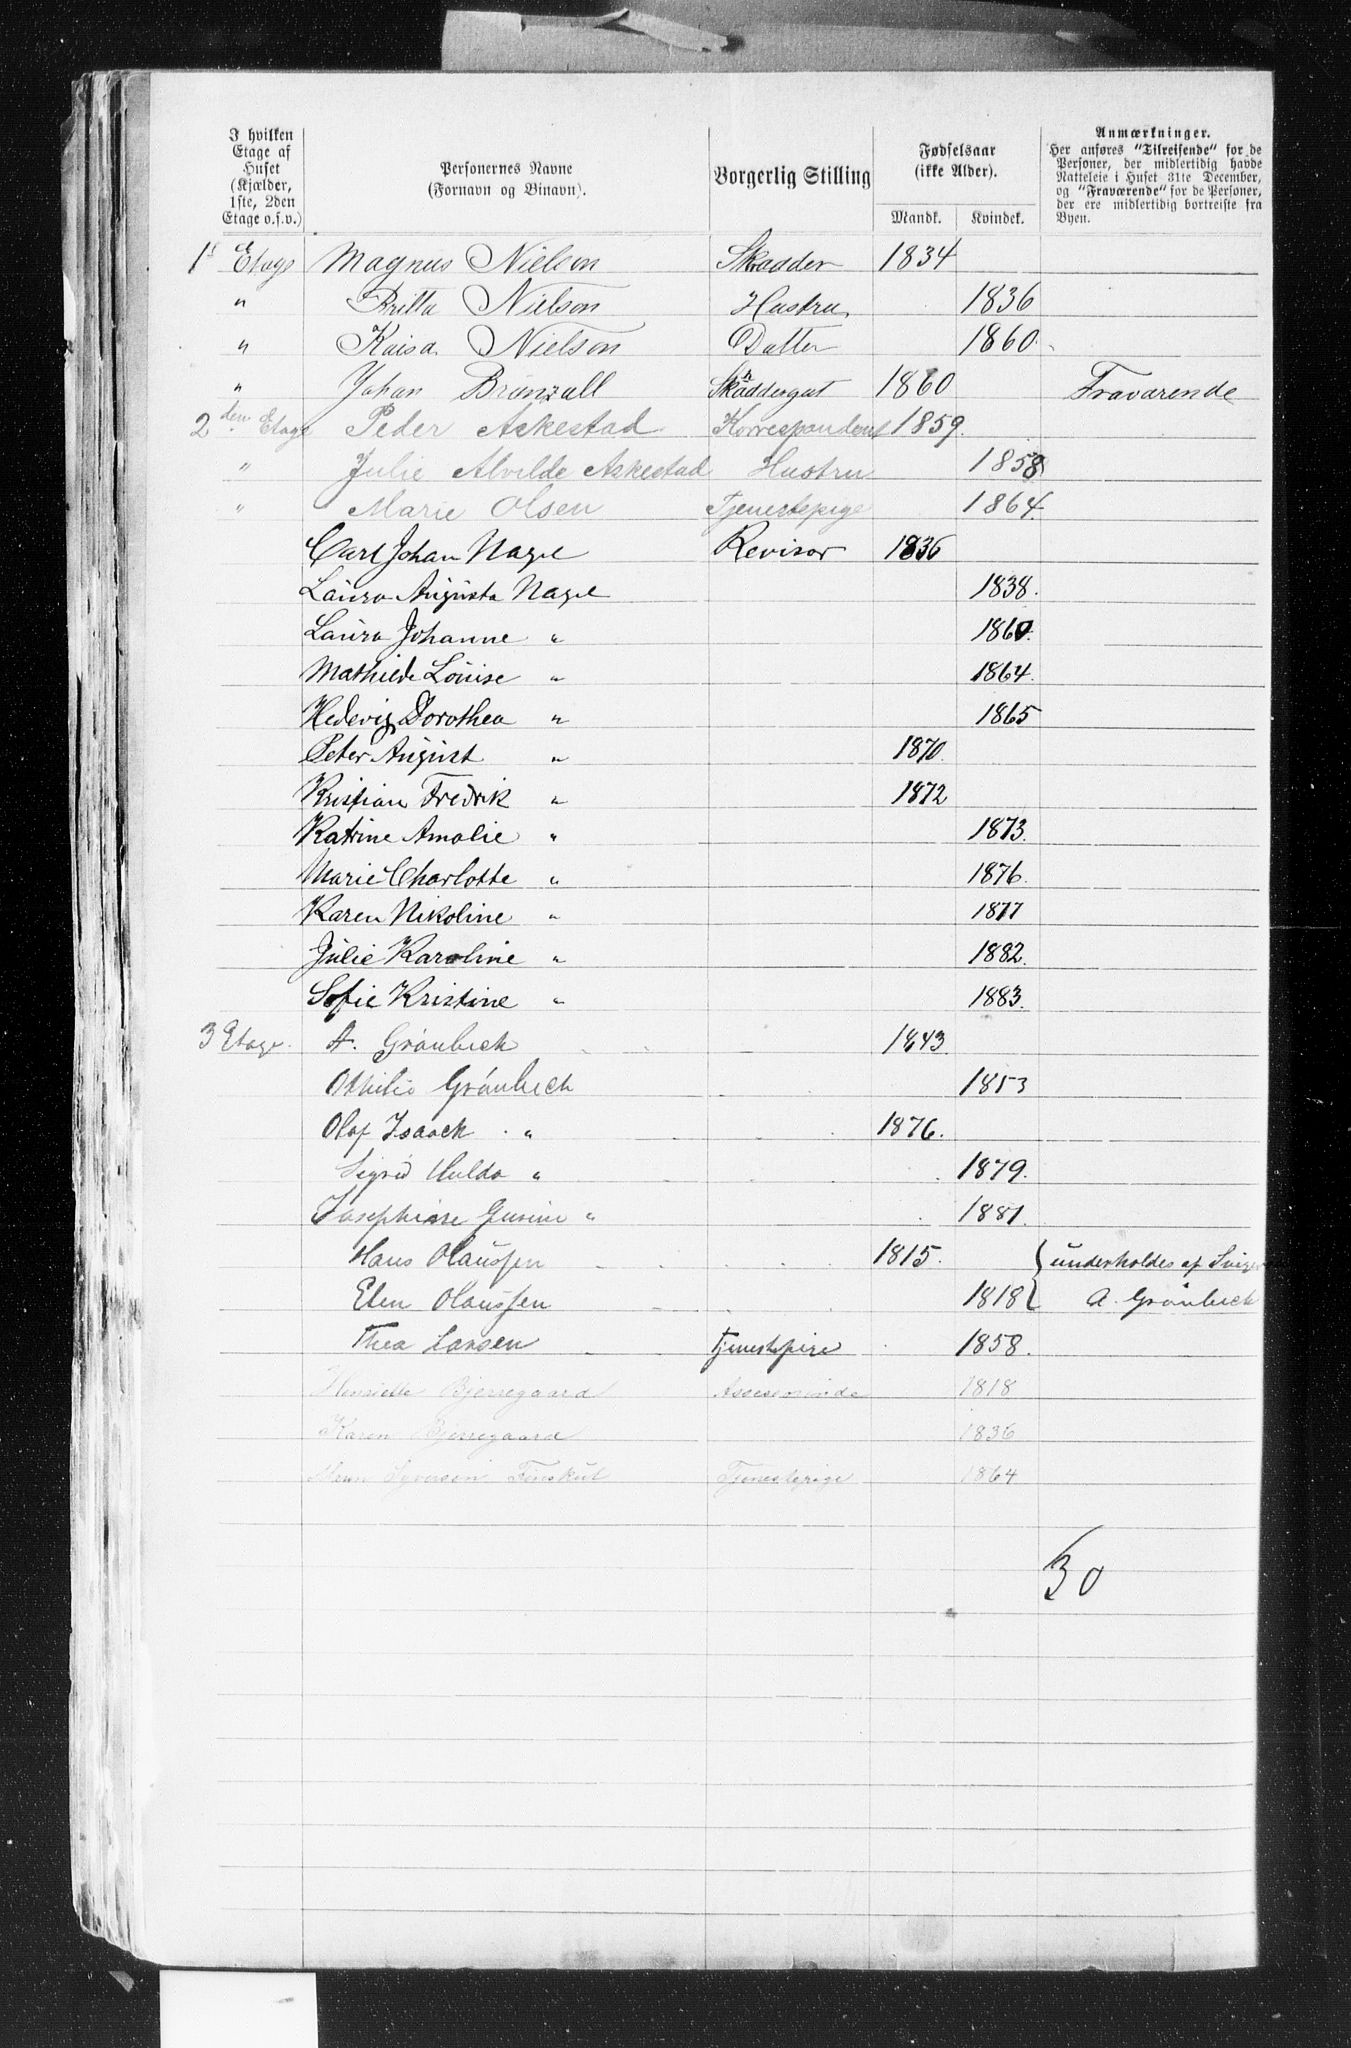 I hvilken Etage af Huset (Kjælder, 1ste, 2den Etage o.s.v.)
Personernes Navne (Fornavn og Binavn).
Borgerlig Stilling
Fødselsaar (ikke Alder).
Mandk. Kvindek.
Anmærkninger.
Her anføres "Tilreisende" for de Personer, der midlertidig havde Natteleie i Huset 31te December, og "Fraværende" for de Personer, der ere midlertidig bortreiste fra Byen.
1s Etage Magnus Nielson Skrædder 1834
" Britta Nielson Hustru 1836
" Kaisa Nielson Datter 1860
" Johan Skræddergut 1860 Fraværende
2den Etage Peder Askestad Korrespondent 1859.
" Julie Alvilde Askestad Hustru 1858
" Marie Olsen Tjenestepige 1864.
Carl Johan Nagel Revisor 1836
Laura Augusta Nagel 1838.
Laura Johanne " 1860.
Mathilde Louise " 1864.
Hedevig Dorothea " 1865
Peter August " 1870.
Kristian Fredrik " 1872
Katrine Amalie " 1873.
Marie Charlotte " 1876.
Karen Nikoline " 1877
Julie Karoline " 1882.
Sofie Kristine " 1883.
3 Etage. A. Grønbech 1843.
Othilie Grønbech 1853
Olaf Isaack " 1876.
Sigrid Hulda " 1879.
Josephine Gurine " 1881.
Hans Olaussen 1815. { underholdes af
Elen Olaussen 1818 { A. Grønbech
Thea Larsen Tjenestepige 1858.
Henriette Bjerregaard Assessorinde 1818
Karen Bjerregaard 1836
Tjenestepige 1864
30